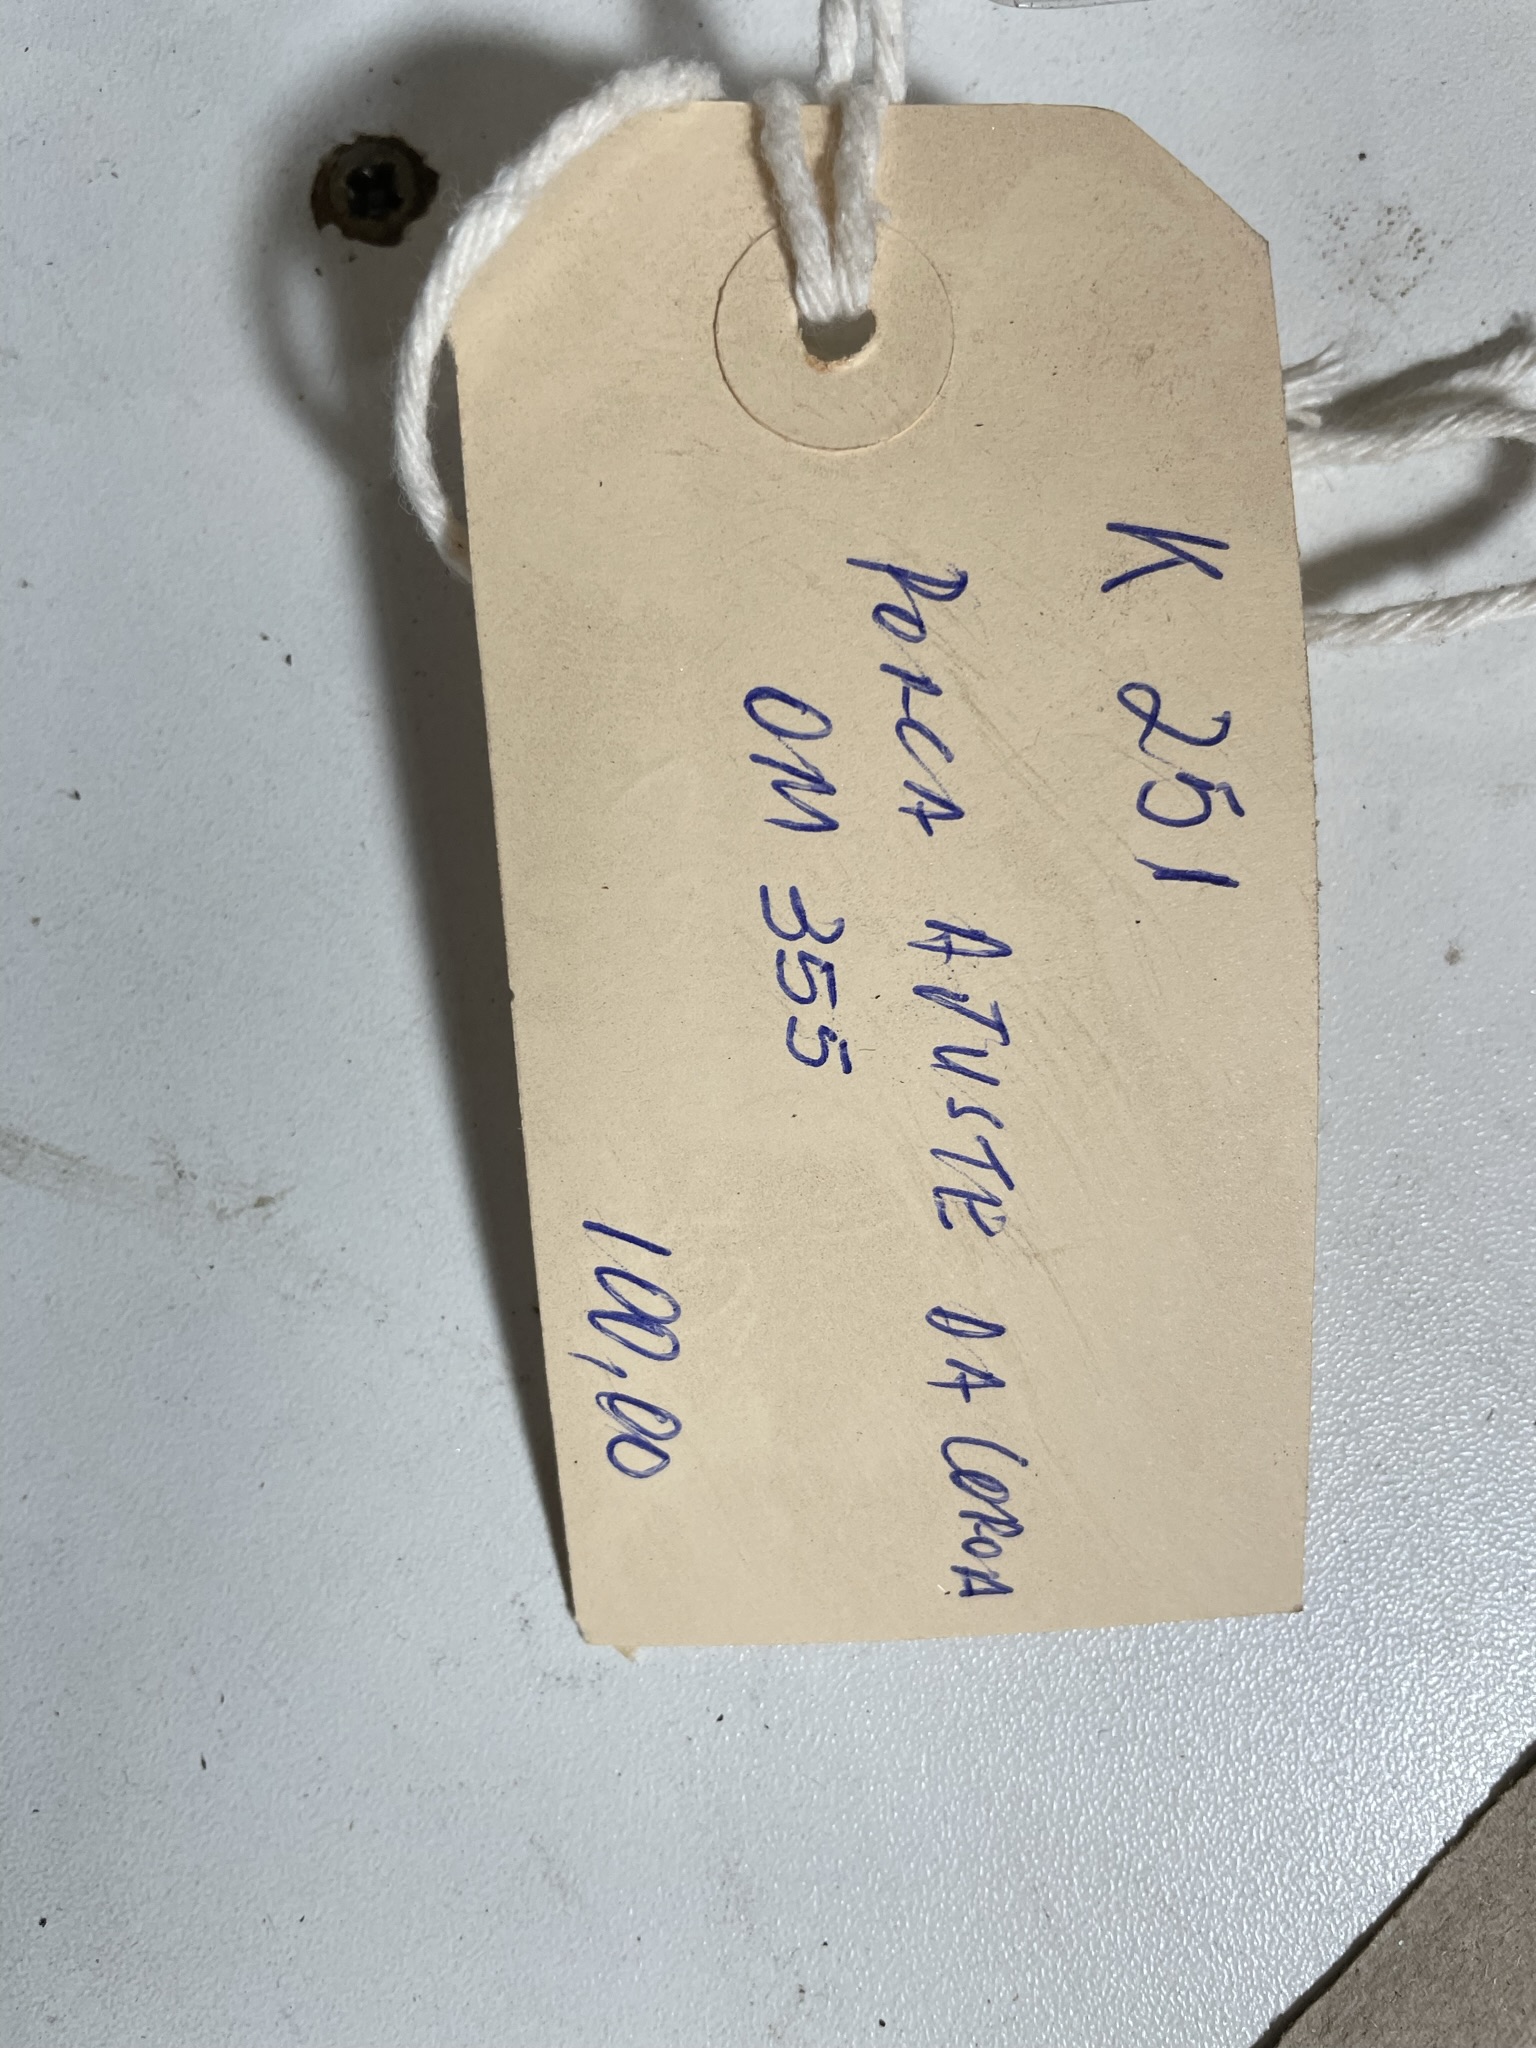 K 251
PORCA AJUSTE DA COROA
OM 355
100,00